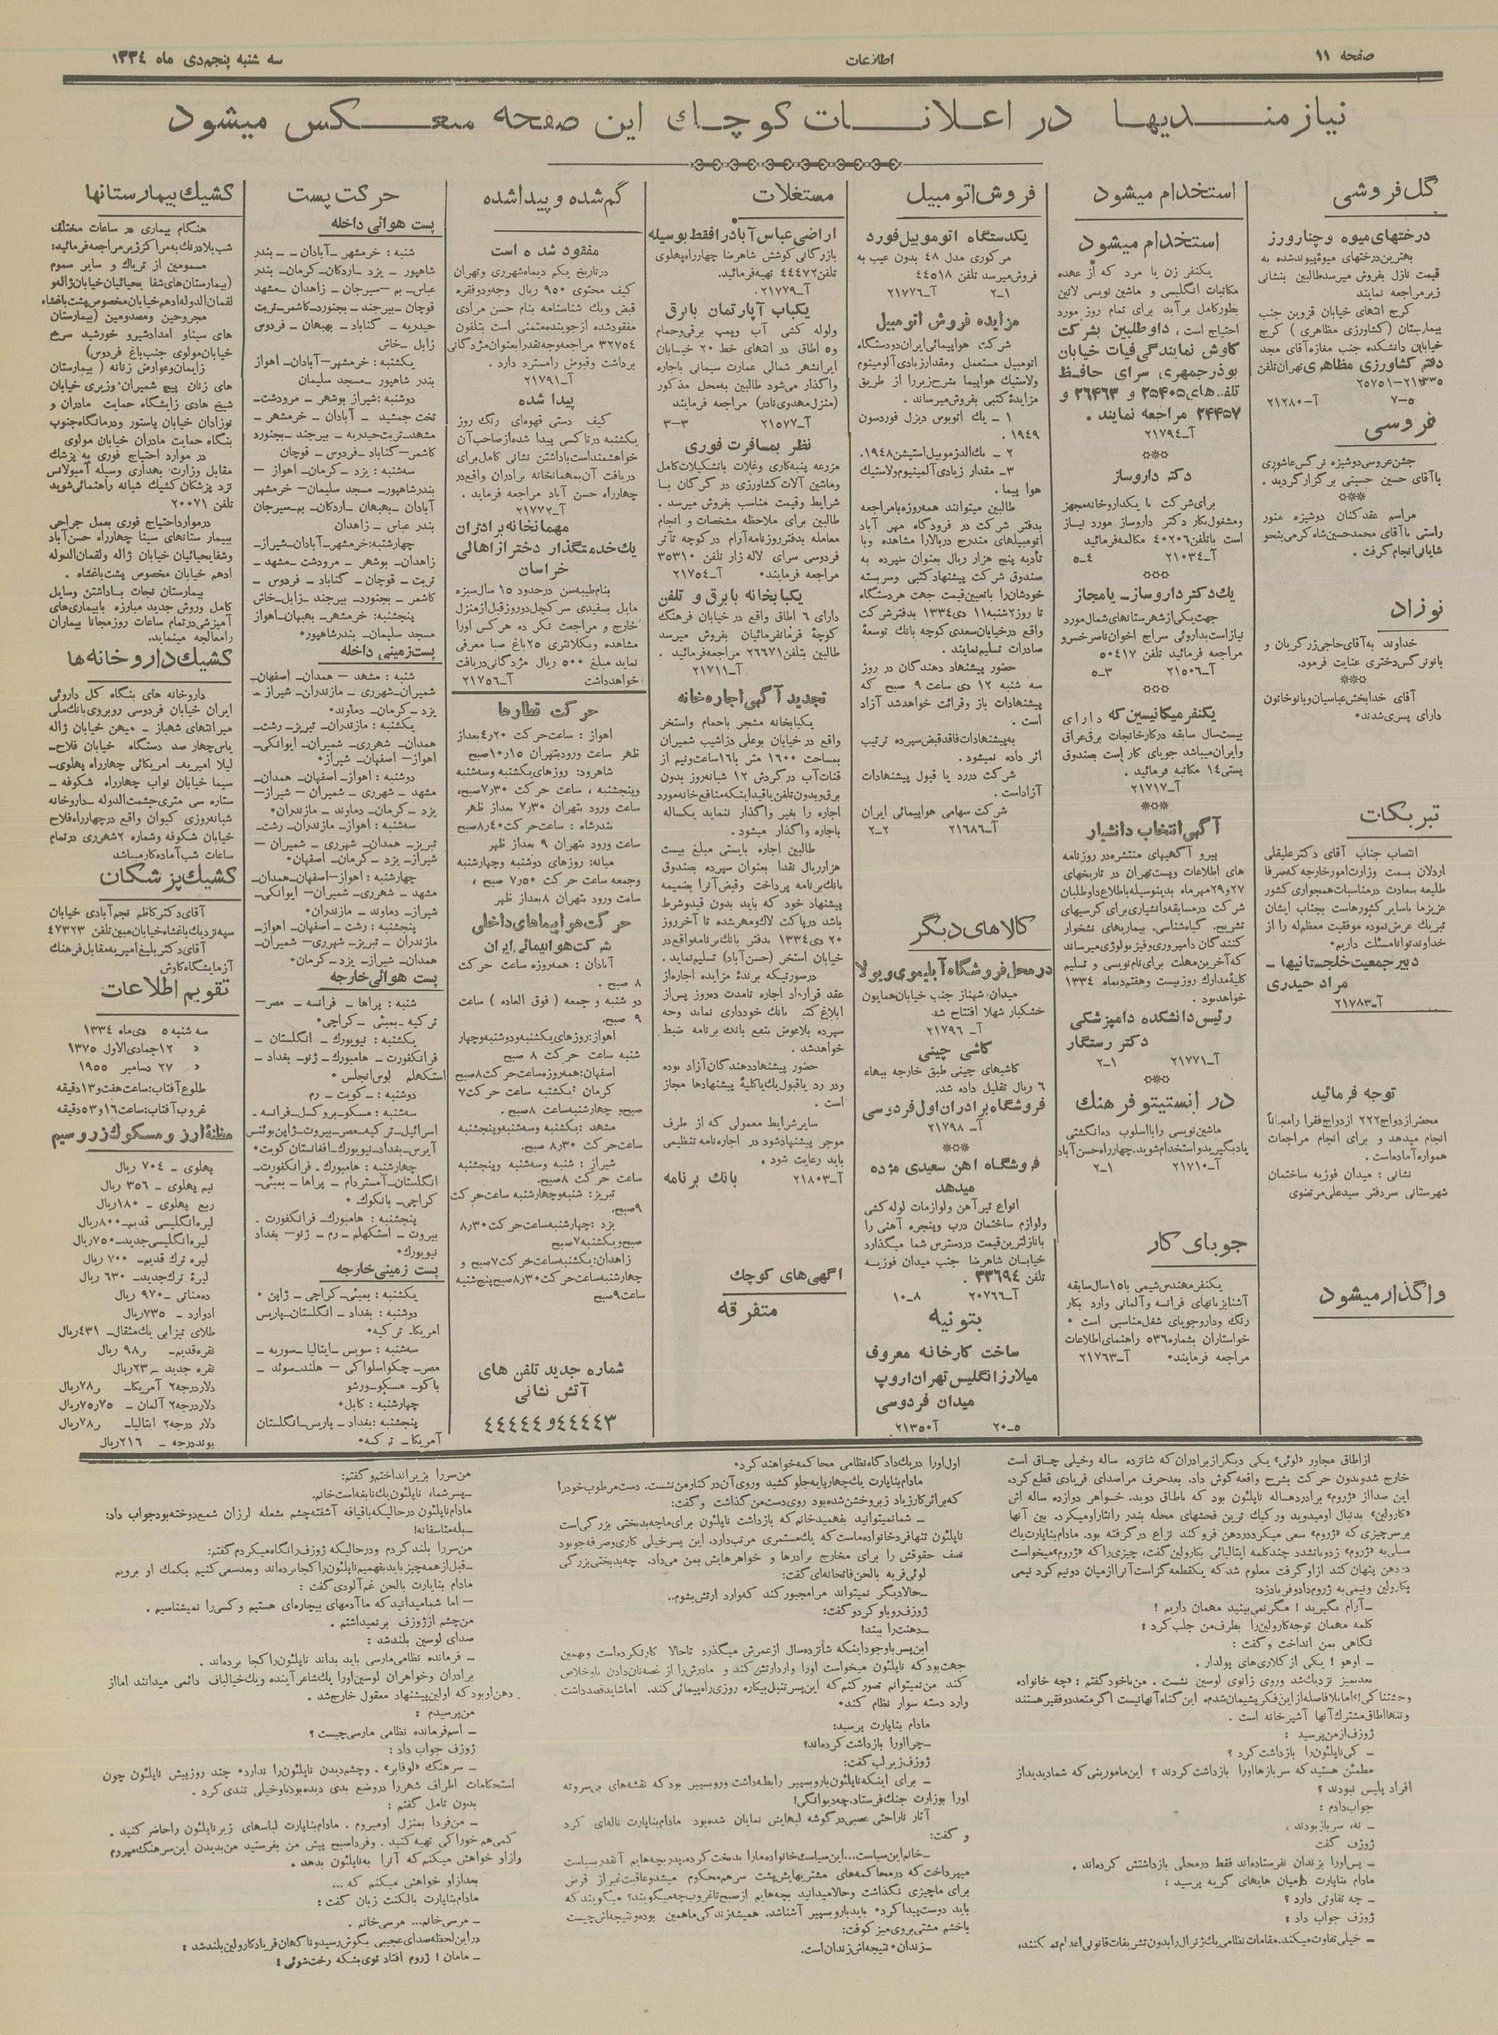 صفحه ۱۱
اطلاعات
سه شنبه پنجم دی ماه ۱۳۳٤
نیازمندیها در اعلانات کوچک این صفحه منعکس میشود
گل فروشی
درختهای میوه و چنار ورز
بهترین درختهای میوهٔ پیوند شده به
قیمت نازل بفروش میرسد طالبین بنشانی
زیر مراجعه نمایند
کرج انتهای خیابان قزوین جنب
بیمارستان (کشاورزی مظاهری) کرج
خیابان دانشکده جنب مغازه آقای مجد
دفتر کشاورزی مظاهری تهران تلفن
آ-۲۱۲۸۰ ۵-۷
عروسی
جشن عروسی دوشیزه نرگس عاشوری
با آقای حسین حسینی برگزار گردید.
مراسم عقد کنان دوشیزه منور
راستی با آقای محمد حسین شاه کرمی بنحو
شایانی انجام گرفت.
نوزاد
خداوند به آقای حاجی زرگریان و
بانو نرگس دختری عنایت فرمود.
آقای خدابخش عباسیان و بانو خاتون
دارای پسری شدند.
تبریکات
انتصاب جناب آقای دکتر علیقلی
اردلان بسمت وزارت امور خارجه که صرفا
طلیعه سعادت در مناسبات همجواری کشور
عزیز ما با سایر کشورهاست بجناب ایشان
تبریک عرض نموده موفقیت معظم له را از
خداوند توانا مسئلت داریم.
دبیر جمعیت خلجستانیها ـ
مراد حیدری
آ-۲۱۷۸۳
توجه فرمائید
محضر ازدواج ۲۲۲ ازدواج فقرا را مجاناً
انجام میدهد و برای انجام مراجعات
همواره آماده است.
نشانی : میدان فوزیه ساختمان
شهرستانی سردفتر سید علی مرتضوی
واگذار میشود
استخدام میشود
استخدام میشود
یکنفر زن یا مرد که از عهده
مکاتبات انگلیسی و ماشین نویسی لاتین
بطور کامل برآید برای تمام روز مورد
احتیاج است ، داوطلبین بشرکت
کاوش نمایندگی فیات خیابان
بوذرجمهری سرای حافظ
تلفنهای ۲۵۴۰۵ و ۲۶۴۶۳ و
۲۴۴۵۷ مراجعه نمایند .
آ-۲۱۷۹٤
دکتر داروساز
برای شرکت با یک داروخانه مجهز
و مشغول بکار دکتر داروساز مورد نیاز
است با تلفن ٤۰۲۰٦ مکالمه فرمائید
آ-۲۱۰۳٤ ٤-۵
یک دکتر داروساز ـ یا مجاز
جهت یکی از شهرستانهای شمال مورد
نیاز است بداروئی سراج اخوان ناصرخسرو
مراجعه فرمائید تلفن ۵۰٤۱۷
آ-۲۱۵۰٦ ۳-۵
یکنفر میکانیسین که دارای
بیست سال سابقه در کارخانجات برق عراق
و ایران میباشد جویای کار است بصندوق
پستی ۱٤ مکاتبه فرمائید .
آ-۲۱۷۱۷
آگهی انتخاب دانشیار
پیرو آگهیهای منتشره در روزنامه
های اطلاعات و پست تهران در تاریخهای
۲۷ و ۲۹ مهرماه بدینوسیله باطلاع داوطلبان
شرکت در مسابقه دانشیاری برای کرسیهای
تشریح، گیاه شناسی، بیماریهای نشخوار
کنندگان دامپروری و فیزیولوژی میرساند
که آخرین مهلت برای نام نویسی و تسلیم
کلیهٔ مدارک روز بیست و هفتم دیماه ۱۳۳٤
خواهد بود .
رئیس دانشکده دامپزشکی
دکتر رستگار
آ-۲۱۷۷۱ ۱-۲
در انستیتو فرهنگ
ماشین نویسی را با اسلوب ده انگشتی
یاد بگیرید و استخدام شوید. چهارراه حسن آباد
آ-۲۱۷۱۰ ۱-۲
جویای کار
یکنفر مهندس شیمی با ۱۵ سال سابقه
آشنا بزبانهای فرانسه و آلمانی وارد بکار
رنگ و دارو جویای شغل مناسبی است .
خواستاران بشماره ۵۳٦ راهنمای اطلاعات
مراجعه فرمایند. آ-۲۱۷٦۳
فروش اتومبیل
یکدستگاه اتوموبیل فورد
مرکوری مدل ٤۸ بدون عیب به
فروش میرسد تلفن ٤٤۵۱۸
آ-۲۱۷۷٦ ۱-۲
مزایده فروش اتومبیل
شرکت هواپیمائی ایران دو دستگاه
اتومبیل مستعمل و مقدار زیادی آلومینوم
و لاستیک هواپیما بشرح زیر را از طریق
مزایدهٔ کتبی بفروش میرساند .
۱ ـ یک اتوبوس دیزل فوردسون
۱۹٤۹ .
۲ ـ یک الدزموبیل استیشن ۱۹٤۸.
۳- مقدار زیادی آلمینیوم و لاستیک
هوا پیما .
طالبین میتوانند همه روزه با مراجعه
بدفتر شرکت در فرودگاه مهر آباد
اتومبیلهای مندرج در بالا را مشاهده و با
تأدیه پنج هزار ریال بعنوان سپرده به
صندوق شرکت پیشنهاد کتبی و سربسته
خودشان را با تعیین قیمت جهت هر دستگاه
تا روز ۲ شنبه ۱۱ دی ۱۳۳٤ بدفتر شرکت
واقع در خیابان سعدی کوچه بانک توسعهٔ
صادرات تسلیم نمایند .
حضور پیشنهاد دهندگان در روز
سه شنبه ۱۲ دی ساعت ۹ صبح که
پیشنهادات باز و قرائت خواهد شد آزاد
است .
به پیشنهادات فاقد قبض سپرده ترتیب
اثر داده نمیشود .
شرکت در رد یا قبول پیشنهادات
آزاد است .
شرکت سهامی هواپیمائی ایران
آ-۲۱٦۸٦ ۲-۲
کالاهای دیگر
در محل فروشگاه آبلیموی ویولا
میدان شهناز جنب خیابان همایون
خشکبار شهلا افتتاح شد.
آ- ۲۱۷۹٦
کاشی چینی
کاشیهای چینی طبق خارجه ببهاء
٦ ریال تقلیل داده شد.
فروشگاه برادران اول فردوسی
آ- ۲۱۷۹۸
فروشگاه آهن سعیدی مژده
میدهد
انواع تیر آهن و لوازمات لوله کشی
و لوازم ساختمان درب و پنجره آهنی را
با نازلترین قیمت در دسترس شما میگذارد
خیابان شاهرضا جنب میدان فوزیه
تلفن ۳۳۶۹۴ .
آ-۲۰۷٦٦ ۸-۱۰
بتونیه
ساخت کارخانه معروف
میلارز انگلیس تهران اروپ
میدان فردوسی
آ-۲۱۳۵۰ ۵-۲۰
مستغلات
اراضی عباس آباد را فقط بوسیله
بازرگانی کوشش شاهرضا چهارراه پهلوی
تلفن ٤٤٤۷۲ تهیه فرمائید.
آ-۲۱۷۷۹
یکباب آپارتمان با برق
و لوله کشی آب و پمپ برقی و حمام
و ٥ اطاق در انتهای خط ۲۰ خیابان
ایرانشهر شمالی عمارت سیمانی باجاره
واگذار می شود طالبین به محل مذکور
(منزل مهدوی نادر) مراجعه فرمایند
آ-۲۱۵۷۷ ۳-۳
نظر بمسافرت فوری
مزرعه پنبه کاری و غلات با تشکیلات کامل
و ماشین آلات کشاورزی در گرگان با
شرایط و قیمت مناسب بفروش میرسد .
طالبین برای ملاحظه مشخصات و انجام
معامله بدفتر روزنامه آرام در کوچه تآتر
فردوسی سرای لاله زار تلفن ۳۵۳۱۰
مراجعه فرمایند. آ-۲۱۷۵٤
یکبابخانه با برق و تلفن
دارای ٦ اطاق واقع در خیابان فرهنگ
کوچهٔ فرمانفرمائیان بفروش میرسد
طالبین بتلفن ۲٦٦۷۱ مراجعه فرمائید .
آ-۲۱۷۱۱
تجدید آگهی اجاره خانه
یکبابخانه مشجر با حمام و استخر
واقع در خیابان بوعلی دزاشیب شمیران
بمساحت ۱٦۰۰ متر با ۱٦ ساعت و نیم از
قنات آب در گردش ۱۲ شبانه روز بدون
برق و بدون تلفن با قید اینکه منافع خانه مورد
اجاره را بغیر واگذار ننماید یکساله
باجاره واگذار میشود .
طالبین اجاره بایستی مبلغ بیست
هزار ریال نقدا بعنوان سپرده بصندوق
بانک برنامه پرداخت و قبض آنرا بضمیمه
پیشنهاد خود که باید بدون قید و شرط
باشد در پاکت لاک و مهر شده تا آخر روز
۲۰ دی ۱۳۳٤ بدفتر بانک برنامه واقع در
خیابان استخر (حسن آباد) تسلیم نماید .
در صورتیکه برندهٔ مزایده اجاره از
عقد قرارداد اجاره تا مدت ده روز پس از
ابلاغ کتبی بانک خودداری نماید وجه
سپرده بلاعوض بنفع بانک برنامه ضبط
خواهد شد .
حضور پیشنهاد دهندگان آزاد بوده
و در رد یا قبول یک یا کلیهٔ پیشنهادها مجاز
است .
سایر شرایط معمولی که از طرف
موجر پیشنهاد شود در اجاره نامه تنظیمی
باید رعایت شود .
آ-۲۱۸۰۳ بانک برنامه
آگهی های کوچک
متفرقه
گم شده و پیدا شده
مفقود شده است
در تاریخ یکم دیماه شهرری و تهران
کیف محتوی ۹۵۰ ریال وجه و دو فقره
قبض و یک شناسنامه بنام حسن مرادی
مفقود شده از جوینده متمنی است بتلفون
۳۲۷۵٤ مراجعه وجه نقد را بعنوان مژدگانی
برداشت و قبوض را مسترد دارد .
آ-۲۱۷۹۱
پیدا شده
کیف دستی قهوه ای رنگ روز
یکشنبه در تاکسی پیدا شده از صاحب آن
خواهشمند است با داشتن نشانی کامل برای
دریافت آن بمهمانخانه برادران واقع در
چهارراه حسن آباد مراجعه فرماید .
آ-۲۱۷۷۲
مهمانخانه برادران
یک خدمتگذار دختر از اهالی
خراسان
بنام طیبه سن در حدود ۱۵ سال سبزه
مایل بسفیدی سرکچل دو روز قبل از منزل
خارج و مراجعت نکرده هر کس او را
مشاهده و بکلانتری ۲۵ باغ صبا معرفی
نماید مبلغ ۵۰۰ ریال مژدگانی دریافت
خواهد داشت آ-۲۱۷۵٦
حرکت قطارها
اهواز : ساعت حرکت ٤٫۲۰ بعداز
ظهر ساعت ورود بتهران ۱۰٫۱۵ صبح
شاهرود: روزهای یکشنبه و سه شنبه
و پنجشنبه ، ساعت حرکت ۷٫۳۰ صبح،
ساعت ورود بتهران ۷٫۳۰ بعداز ظهر
بندرشاه : ساعت حرکت ۸٫٤۰ صبح
ساعت ورود بتهران ۹ بعداز ظهر
میانه: روزهای دوشنبه و چهارشنبه
و جمعه ساعت حرکت ۷٫۵۰ صبح ،
ساعت ورود بتهران ۸ بعداز ظهر
حرکت هواپیماهای داخلی
شرکت هواپیمائی ایران
آبادان : همه روزه ساعت حرکت
۸ صبح .
دو شنبه و جمعه (فوق العاده) ساعت
۹ صبح .
اهواز: روزهای یکشنبه و دوشنبه و چهار
شنبه ساعت حرکت ۸ صبح
اصفهان: همه روزه ساعت حرکت ۸ صبح
کرمان : یکشنبه ساعت حرکت ۷
صبح و چهارشنبه ساعت ۸ صبح .
مشهد : یکشنبه و سه شنبه و پنجشنبه
ساعت حرکت ۸٫۳۰ صبح.
شیراز : شنبه و سه شنبه و پنجشنبه
ساعت حرکت ۸ صبح.
تبریز: شنبه و چهارشنبه ساعت حرکت
۹ صبح.
یزد : چهارشنبه ساعت حرکت ۸٫۳۰
صبح و یکشنبه ۷ صبح
زاهدان: یکشنبه ساعت حرکت ۷ صبح و
چهارشنبه ساعت حرکت ۸٫۳۰ صبح پنج شنبه
ساعت ۹ صبح
شماره جدید تلفن های
آتش نشانی
٤٤٤٤۳ و ٤٤٤٤٤
حرکت پست
پست هوائی داخله
شنبه : خرمشهر ـ آبادان ـ بندر
شاهپور ـ یزد ـ اردکان ـ کرمان ـ بندر
عباس ـ بم ـ سیرجان ـ زاهدان ـ مشهد
قوچان ـ بیرجند ـ بجنورد ـ کاشمر ـ تربت
حیدریه ـ گناباد ـ بهبهان ـ فردوس
زابل ـ خاش
یکشنبه : خرمشهر ـ آبادان ـ اهواز
بندر شاهپور ـ مسجد سلیمان
دوشنبه: شیراز بوشهر ـ مرودشت ـ
تخت جمشید ـ آبادان ـ خرمشهر ـ
مشهد ـ تربت حیدریه ـ بیرجند ـ بجنورد
کاشمر ـ گناباد ـ فردوس ـ قوچان
سه شنبه : یزد ـ کرمان ـ اهواز ـ
بندر شاهپور ـ مسجد سلیمان ـ خرمشهر
آبادان ـ بهبهان ـ اردکان ـ بم ـ سیرجان
بندر عباس ـ زاهدان
چهارشنبه: خرمشهر ـ آبادان ـ شیراز ـ
زاهدان ـ بوشهر ـ مرودشت ـ مشهد ـ
تربت ـ قوچان ـ گناباد ـ فردوس ـ
کاشمر ـ بجنورد ـ بیرجند ـ زابل ـ خاش
پنجشنبه: خرمشهر ـ بهبهان ـ اهواز
مسجد سلیمان ـ بندر شاهپور.
پست زمینی داخله
شنبه : مشهد ـ همدان ـ اصفهان ـ
شمیران ـ شهرری ـ مازندران ـ شیراز ـ
یزد ـ کرمان ـ دماوند.
یکشنبه : مازندران ـ تبریز ـ رشت ـ
همدان ـ شهرری ـ شمیران ـ ایوانکی ـ
اهواز ـ اصفهان ـ شیراز.
دوشنبه : اهواز ـ اصفهان ـ همدان ـ
مشهد ـ شهرری ـ شمیران ـ شیراز ـ
یزد ـ کرمان ـ دماوند ـ مازندران.
سه شنبه : اهواز ـ مازندران ـ رشت ـ
تبریز ـ همدان ـ شهرری ـ شمیران ـ
شیراز ـ یزد ـ کرمان ـ اصفهان.
چهارشنبه : اهواز ـ اصفهان ـ همدان ـ
مشهد ـ شهرری ـ شمیران ـ ایوانکی ـ
شیراز ـ دماوند ـ مازندران.
پنجشنبه : رشت ـ اصفهان ـ اهواز ـ
مازندران ـ تبریز ـ شهرری ـ شمیران ـ
همدان ـ شیراز ـ یزد ـ کرمان.
پست هوائی خارجه
شنبه : پراها ـ فرانسه ـ مصر ـ
ترکیه ـ بمبئی ـ کراچی.
یکشنبه : نیویورک ـ انگلستان ـ
فرانکفورت ـ هامبورک ـ ژنو ـ بغداد ـ
استکهلم لوس آنجلس .
دوشنبه : ـ کویت ـ رم
سه شنبه : مسکو ـ بروکسل ـ فرانسه ـ
اسرائیل ـ ترکیه ـ مصر ـ بیروت ـ ژاپن بوئنس
آیرس ـ بغداد ـ نیویورک ـ افغانستان کویت.
چهارشنبه : هامبورک ـ فرانکفورت ـ
انگلستان ـ آمستردام ـ پراها ـ بمبئی ـ
کراچی ـ بانکوک .
پنجشنبه : هامبورک ـ فرانکفورت ـ
بیروت ـ استکهلم ـ رم ـ ژنو ـ بغداد
نیویورک.
پست زمینی خارجه
یکشنبه : بمبئی ـ کراچی ـ ژاپن .
دوشنبه : بغداد ـ انگلستان ـ پاریس
آمریکا. ترکیه.
سه شنبه : سویس ـ ایتالیا ـ سوریه ـ
مصر ـ چکواسلواکی ـ هلند ـ سوئد ـ
باکو ـ مسکو ـ ورشو
چهارشنبه : کابل.
پنجشنبه : بغداد ـ پارس ـ انگلستان
آمریکا ـ ترکیه.
کشیک بیمارستانها
هنگام بیماری در ساعات مختلف
شب بلادرنگ به مراکز زیر مراجعه فرمائید:
مسمومین از تریاک و سایر سموم
(بیمارستان های شفا یحیائیان خیابان ژاله و
لقمان الدوله ادهم خیابان مخصوص پشت باغشاه
مجروحین و مصدومین (بیمارستان
های سینا و امداد شیر و خورشید سرخ
خیابان مولوی جنب باغ فردوس)
زایمان و عوارض زنانه (بیمارستان
های زنان پیچ شمیران، وزیری خیابان
شیخ هادی زایشگاه حمایت مادران و
نوزادان خیابان پاستور و درمانگاه جنوب
بنگاه حمایت مادران خیابان مولوی
در موارد احتیاج فوری به پزشک
مقابل وزارت بهداری وسیله آمبولانس
نزد پزشکان کشیک شبانه راهنمائی شوید
تلفن ۲۰۰۷۱
در موارد احتیاج فوری بعمل جراحی
ببیمارستانهای سینا چهارراه حسن آباد
و شفا یحیائیان خیابان ژاله و لقمان الدوله
ادهم خیابان مخصوص پشت باغشاه .
بیمارستان نجات با داشتن وسایل
کامل و روش جدید مبارزه با بیماری های
آمیزشی در تمام ساعات روز مجانا بیماران
را معالجه مینماید.
کشیک داروخانه ها
داروخانه های بنگاه کل داروئی
ایران خیابان فردوسی روبروی بانک ملی
میر انتهای شهباز ـ میهن خیابان ژاله
یاس چهارصد دستگاه خیابان فلاح ـ
لیلا امیریه ـ امریکائی چهارراه پهلوی ـ
سینا خیابان نواب چهارراه شکوفه ـ
ستاره سی متری حشمت الدوله ـ داروخانه
شبانه روزی کیوان واقع در چهارراه فلاح
خیابان شکوفه و شماره ۲ شهرری در تمام
ساعات شب آماده کار میباشد
کشیک پزشکان
آقای دکتر کاظم نجم آبادی خیابان
سپه نزدیک باغشاه خیابان مبین تلفن ٤۷۳۲۳
آقای دکتر بلیغ امیریه مقابل فرهنگ
آزمایشگاه کاوش
تقویم اطلاعات
سه شنبه ۵ دی ماه ۱۳۳٤
» ۱۲ جمادی الاول ۱۳۷۵
» ۲۷ دسامبر ۱۹۵۵
طلوع آفتاب: ساعت هفت و ۱۳ دقیقه
غروب آفتاب: ساعت ۱٦ و ۵۳ دقیقه
مظنهٔ ارز و مسکوک زر و سیم
پهلوی ـ ۷۰٤ ریال
نیم پهلوی ـ ۳۵٦ ریال
ربع پهلوی ـ ۱۸۰ ریال
لیره انگلیسی قدیم ـ ۸۰۰ ریال
لیره انگلیسی جدید ـ ۷۵۰ ریال
لیره ترک قدیم ـ ۷۰۰ ریال
لیرهٔ ترک جدید ـ ٦۳۰ ریال
ده مناتی ـ ۹۷۰ ریال
ادوارد ـ ۷۳۵ ریال
طلای تیزابی یک مثقال ـ ٤۳۱ ریال
نقره قدیم ـ ۹۸ر ریال
نقره جدید ـ ۲۳ر ریال
دلار درجه ۲ آمریکا ـ ۷۸ر ریال
دلار درجه ۲ آلمان ـ ۷۵ر۷۵ ریال
دلار درجه ۲ ایتالیا ـ ۷۸ر ریال
پوند درجه ـ ۲۱٦ ریال
از اطاق مجاور «لوئی» یکی دیگر از برادران که شانزده ساله و خیلی چاق است
خارج شد و بدون حرکت بشرح واقعه گوش داد. بعد حرف مرا صدای فریادی قطع کرد.
این صدا از «ژروم» برادر ده ساله ناپلئون بود که باطاق دوید. خواهر دوازده ساله اش
«کارولین» بدنبال او میدوید و رکیک ترین فحشهای محله بندر را نثار او میکرد. بین آنها
بر سر چیزی که «ژروم» سعی میکرد در دهن فرو کند نزاع در گرفته بود. مادام بناپارت یک
سیلی به «ژروم» زد و با تشدد چند کلمه ایتالیائی بکارولین گفت، چیزی را که «ژروم» میخواست
در دهن پنهان کند از او گرفت معلوم شد که یک قطعه گز است آنرا از میان دو نیم کرد نیمی
بکارولین و نیمی به ژروم داد و فریاد زد:
ـ آرام بگیرید ! مگر نمی بینید مهمان داریم !
کلمه مهمان توجه کارولین را بطرف من جلب کرد ؛
نگاهی بمن انداخت و گفت :
ـ اوهو ! یکی از کلاری های پولدار .
بعد بمیز نزدیک شد و روی زانوی لوسین نشست . من با خود گفتم : «چه خانواده
وحشتناکی!» اما بلافاصله از این فکر پشیمان شدم. این گناه آنها نیست اگر متعدد و فقیر هستند
و تنها اطاق مشترک آنها آشپزخانه است .
ژوزف از من پرسید :
ـ کی ناپلئون را بازداشت کرد ؟
مطمئن هستید که سربازها او را بازداشت کردند ؟ این مامورینی که شما دیدید از
افراد پلیس نبودند ؟
جواب دادم :
ـ نه، سرباز بودند .
ژوزف گفت
ـ پس او را بزندان نفرستاده اند فقط در محلی بازداشتش کرده اند .
مادام بناپارت در میان هایهای گریه پرسید :
ـ چه تفاوتی دارد ؟
ژوزف جواب داد :
ـ خیلی تفاوت میکند، مقامات نظامی یک ژنرال را بدون تشریفات قانونی اعدام نمی کنند،
اول او را در یک دادگاه نظامی محاکمه خواهند کرد.
مادام بناپارت یک چهارپایه جلو کشید و روی آن در کنار من نشست. دست مرطوب خود را
که بر اثر کار زیاد زبر و خشن شده بود روی دست من گذاشت و گفت:
ـ شما نمیتوانید بفهمید خانم که بازداشت ناپلئون برای ما چه بدبختی بزرگی است
ناپلئون تنها فرد خانواده ماست که یک مستمری مرتب دارد. این پسر خیلی کاری و صرفه جو بود
نصف حقوقش را برای مخارج برادرها و خواهرهایش بمن می داد. چه بدبختی بزرگی
لوئی فربه با لحن فاتحانه ای گفت:
ـ حالا دیگر نمیتواند مرا مجبور کند که وارد ارتش بشوم..
ژوزف رو باو کرد و گفت:
ـ دهنت را ببند!
این پسر با وجود اینکه شانزده سال از عمرش میگذرد تا حالا کار نکرده است و بهمین
جهت بود که ناپلئون میخواست او را وارد ارتش کند و مادرش را از غصه نان دادن باو خلاص
کند من نمیتوانم تصور کنم که این پسر تنبل بیکاره روزی راه پیمائی کند. اما شاید قصد داشت
وارد دسته سوار نظام کند.
مادام بناپارت پرسید:
ـ چرا او را بازداشت کرده اند؟
ژوزف زیر لب گفت:
ـ برای اینکه ناپلئون با روبسپیر رابطه داشت و روبسپیر بود که نقشه های بی سروته
او را بوزارت جنگ فرستاد، چه دیوانگی!
آثار ناراحتی عصبی در گوشه لبهایش نمایان شده بود مادام بناپارت ناله ای کرد
و گفت:
ـ خانم این سیاست.... این سیاست خانواده ما را بدبخت کرده، پدر بچه هایم آنقدر سیاست
میپرداخت که در محاکمه های مشتریهایش پشت سرهم محکوم میشد و عاقبت غیر از قرض
برای ما چیزی نگذاشت و حالا میدانید بچه هایم از صبح تا غروب چه میگویند؟ میگویند که
باید دوست پیدا کرد. باید با روبسپیر آشنا شد. همیشه زندگی ما همین بوده و نتیجه اش چیست
با خشم مشتی بروی میز کوفت:
ـ زندان. نتیجه اش زندان است.
من سر را بزیر انداختم و گفتم:
ـ پسر شما، ناپلئون یک نابغه است خانم.
مادام ناپلئون در حالیکه با قیافه آشفته چشم بشعله لرزان شمع دوخته بود جواب داد:
ـ بله متاسفانه!
من سر را بلند کردم و در حالیکه ژوزف را نگاه میکردم گفتم:
ـ قبل از همه چیز باید بفهمیم ناپلئون را کجا برده اند و بعد سعی کنیم بکمک او برویم
مادام بناپارت با لحن غم آلودی گفت:
ـ اما شما میدانید که ما آدمهای بیچاره ای هستیم و کسی را نمیشناسیم .
من چشم از ژوزف برنمیداشتم .
صدای لوسین بلند شد :
ـ فرمانده نظامی مارسی باید بداند ناپلئون را کجا برده اند .
برادران و خواهران لوسین او را یک شاعر آینده و یک خیالباف دائمی میدانند اما از
دهن او بود که اولین پیشنهاد معقول خارج شد .
من پرسیدم :
ـ اسم فرمانده نظامی مارسی چیست ؟
ژوزف جواب داد :
ـ سرهنگ «لوفابر» . و چشم دیدن ناپلئون را ندارد. چند روز پیش ناپلئون چون
استحکامات اطراف شهر را در وضع بدی دیده بود باو خیلی تندی کرد .
بدون تأمل گفتم :
ـ من فردا بمنزل او میروم . مادام بناپارت لباسهای زیر ناپلئون را حاضر کنید .
کمی هم خوراکی تهیه کنید . و فردا صبح پیش من بفرستید من بدیدن این سرهنگ میروم
و از او خواهش میکنم که آنرا به ناپلئون بدهد .
بعد از او خواهش میکنم که ...
مادام بناپارت با لکنت زبان گفت :
ـ مرسی خانم.... مرسی خانم .
در این لحظه صدای عجیبی بگوش رسید و ناگهان فریاد کارولین بلند شد :
ـ مامان ! ژروم افتاد توی بشکه رخت شوئی !